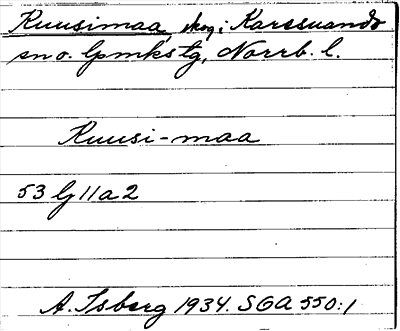 Kuusimaa, skog i Karesuando
sn o. lpmkstg, Norrb. l.
Kuusi-maa
53 lj 11 a 2
A. Isberg 1934. SOA 550:1